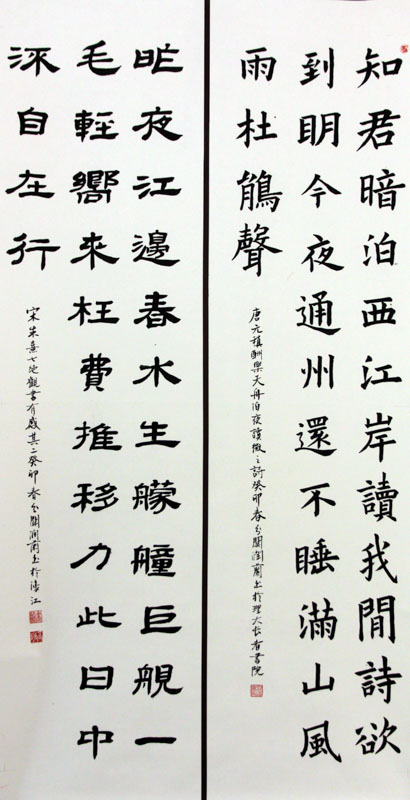 知君暗泊西江岸讀我閒詩欲
到眀今夜通州還不睡滿山風
雨杜鵑聲
唐元稹酬樂天舟泊夜讀微之詩癸卯春分關潤蘭書於理大長者書院
昨夜江邊春水生艨艟巨舰一
毛輕嚮來枉費推移力此日中
流自在行
宋朱熹七絕觀書有感其二癸卯春分關潤蘭書於江